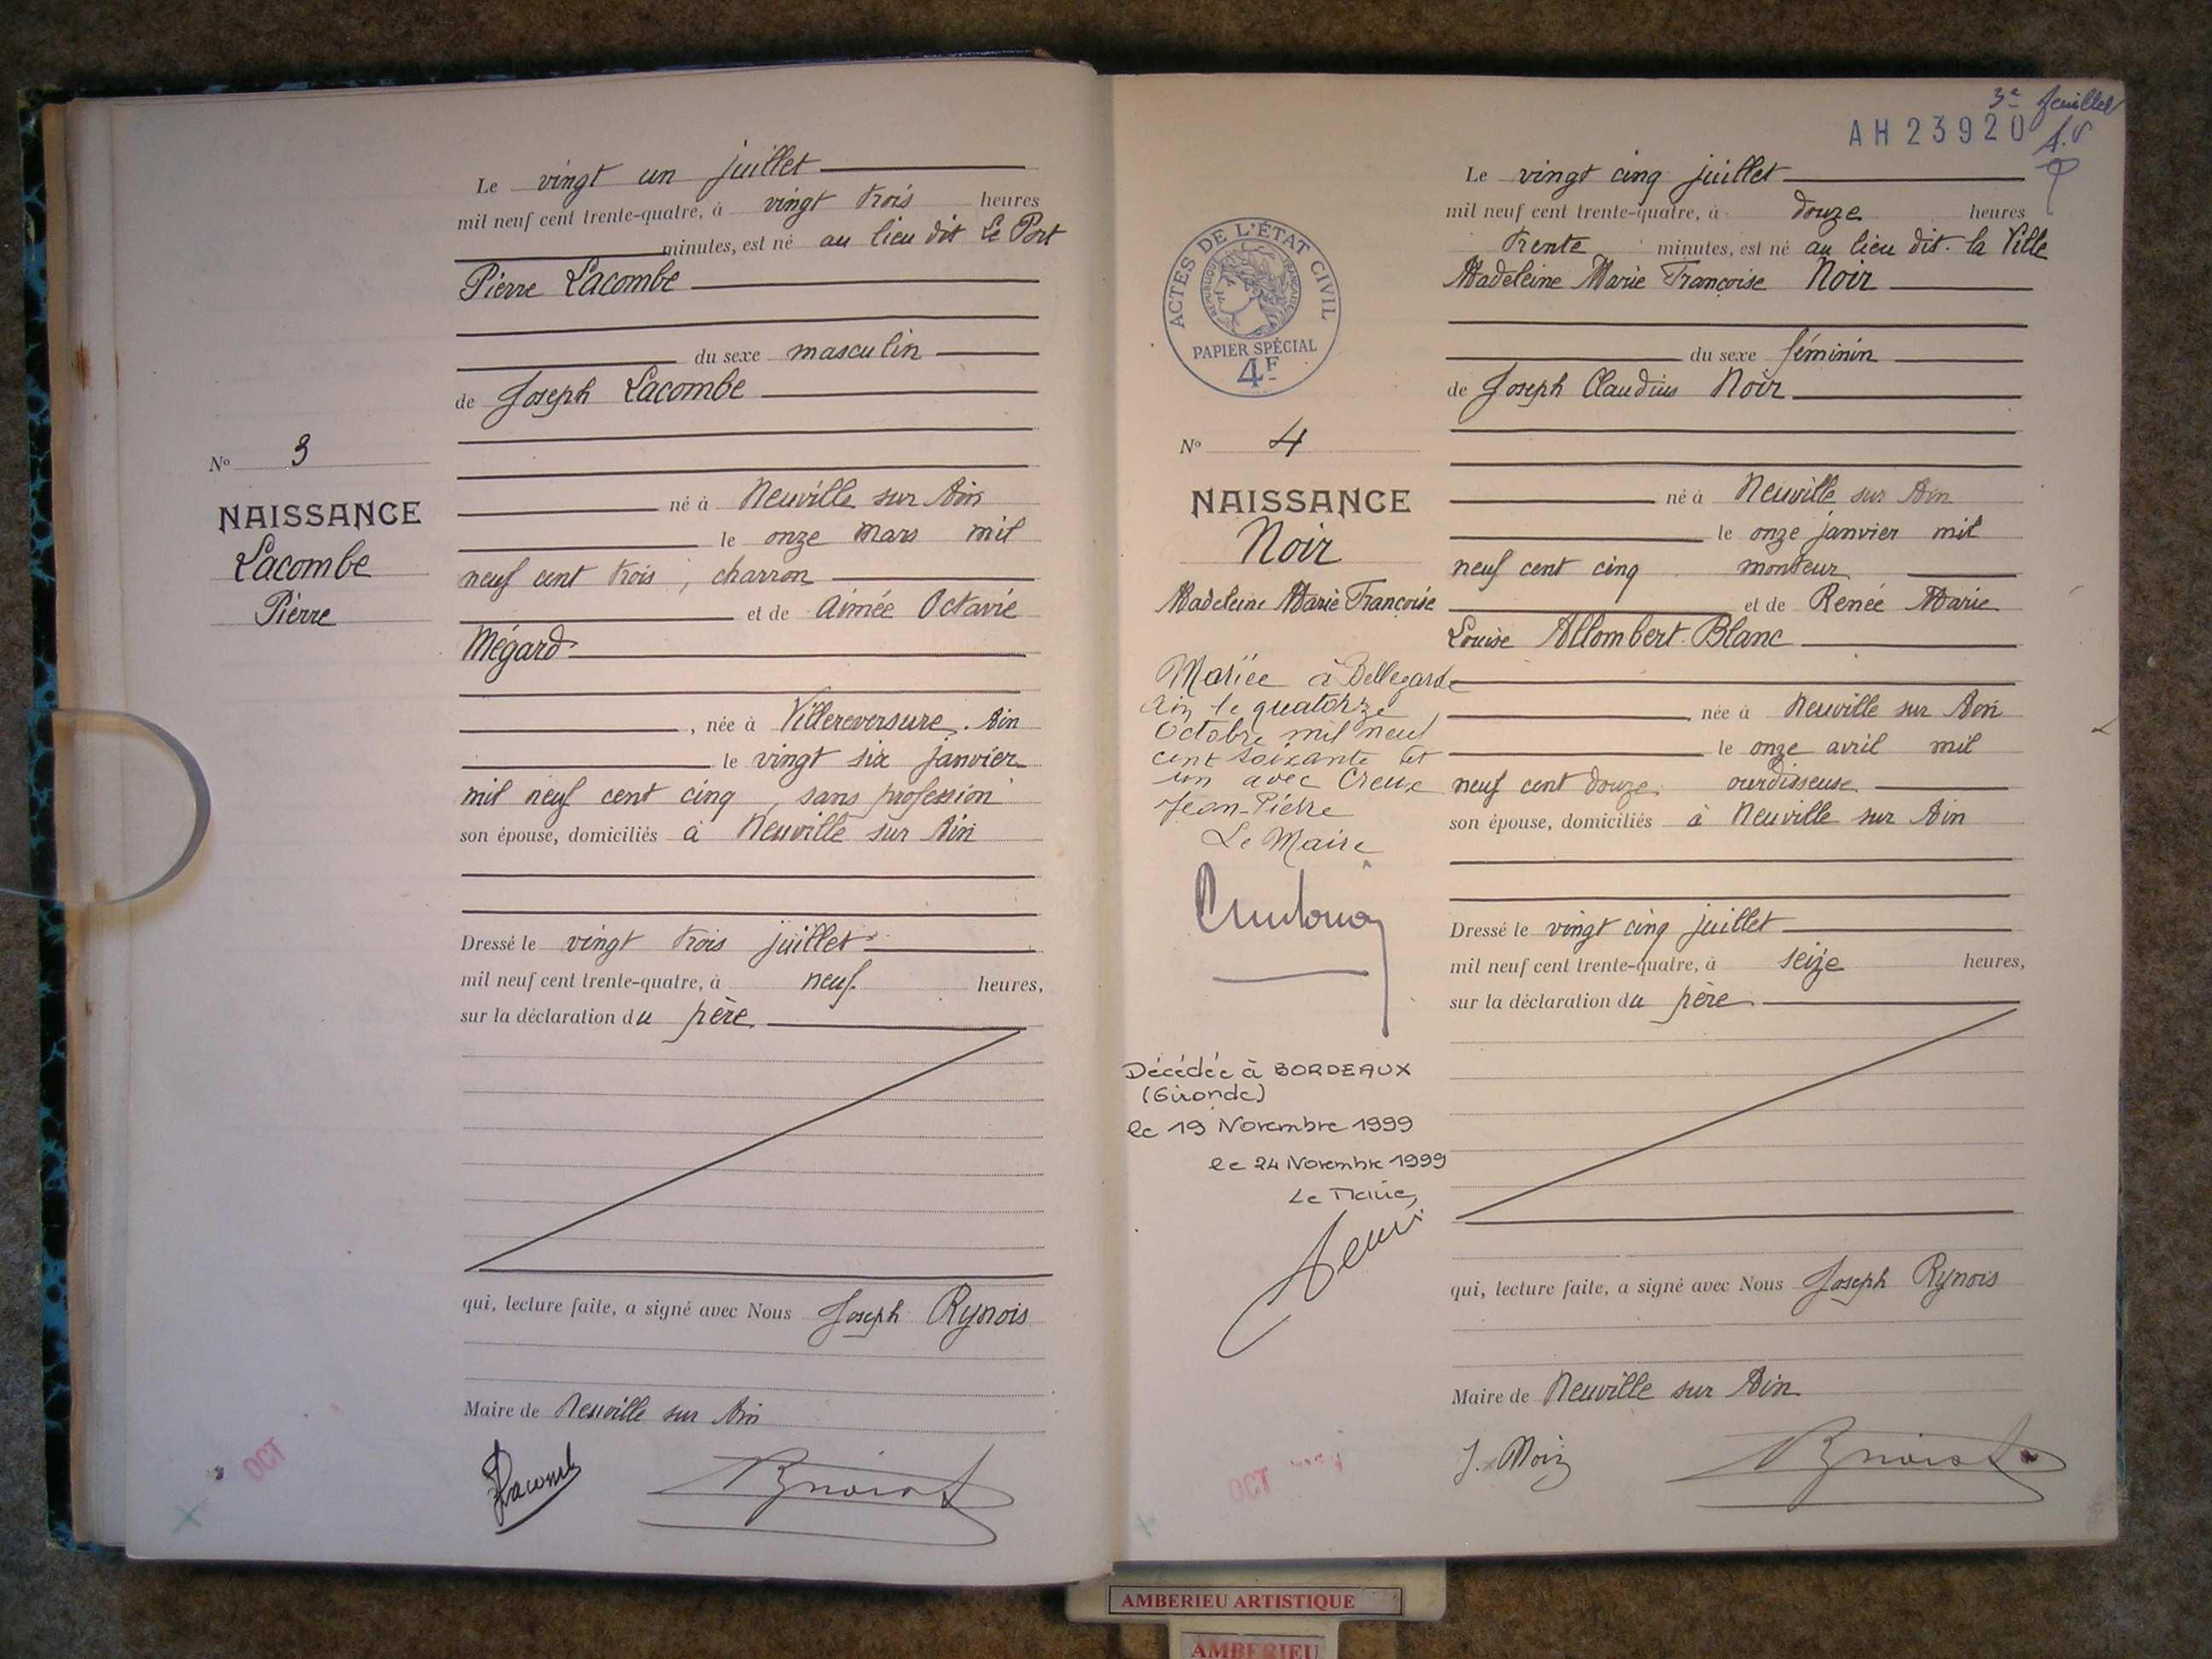 Le vingt un juillet
mil neuf cent trente-quatre, à vingt trois heures
minutes, est né au lieu dit Le Port
Pierre Lacombe
du sexe masculin
de Joseph Lacombe
No 3
NAISSANCE
Lacombe
Pierre
né à Neuville sur Ain
le onze mars mil
neuf cent trois, charron
et de Aimée Octavie
Mégard
, née à Villereversure. Ain
le vingt six janvier
mil neuf cent cinq, sans profession
son épouse, domiciliés à Neuville sur Ain
Dressé le vingt trois juillet
mil neuf cent trente-quatre, à neuf heures,
sur la déclaration du père
qui, lecture faite, a signé avec Nous Joseph Rynois
Maire de Neuville sur Ain
Lacombe
OCT
3e feuillet
AH23920
ACTES DE L'ÉTAT CIVIL
RÉPUBLIQUE FRANÇAISE
PAPIER SPÉCIAL
4F
Le vingt cinq juillet
mil neuf cent trente-quatre, à douze heures
trente minutes, est né au lieu dit. la Ville
Madeleine Marie Françoise Noir
du sexe féminin
de Joseph Claudius Noir
No 4
NAISSANCE
Noir
Madeleine Marie Françoise
né à Neuville sur Ain
le onze janvier mil
neuf cent cinq monteur
et de Renée Marie
Louise Allombert-Blanc
née à Neuville sur Ain
le onze avril mil
neuf cent douze. ourdisseuse
son épouse, domiciliés à Neuville sur Ain
Mariée à Bellegarde
Ain le quatorze
Octobre mil neuf
cent soixante et
un avec Creux
Jean-Pierre
Le Maire
Décédée à BORDEAUX
(Gironde)
le 19 Novembre 1999
le 24 Novembre 1999
Le Maire,
Dressé le vingt cinq juillet
mil neuf cent trente-quatre, à seize heures,
sur la déclaration du père
qui, lecture faite, a signé avec Nous Joseph Rynois
Maire de Neuville sur Ain
J. Noir
OCT
AMBERIEU ARTISTIQUE
AMBERIEU